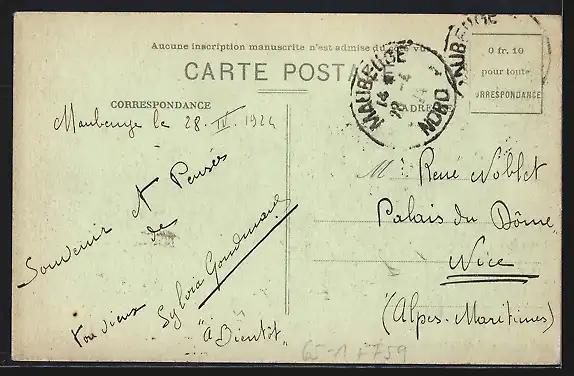 Aucune inscription manuscrite n'est admise du côté vue
CARTE POSTA
CORRESPONDANCE
ADRESSE
0 fr. 10
pour toute
CORRESPONDANCE
MAUBEUGE
NORD
MAUBEUGE
Maubeuge le 28. IV. 1924
Souvenir et Pensées
de
ton vieux
Sylvia
"à Bientôt"
Mr René Noblet
Palais du Dôme
Nice
(Alpes-Maritimes)